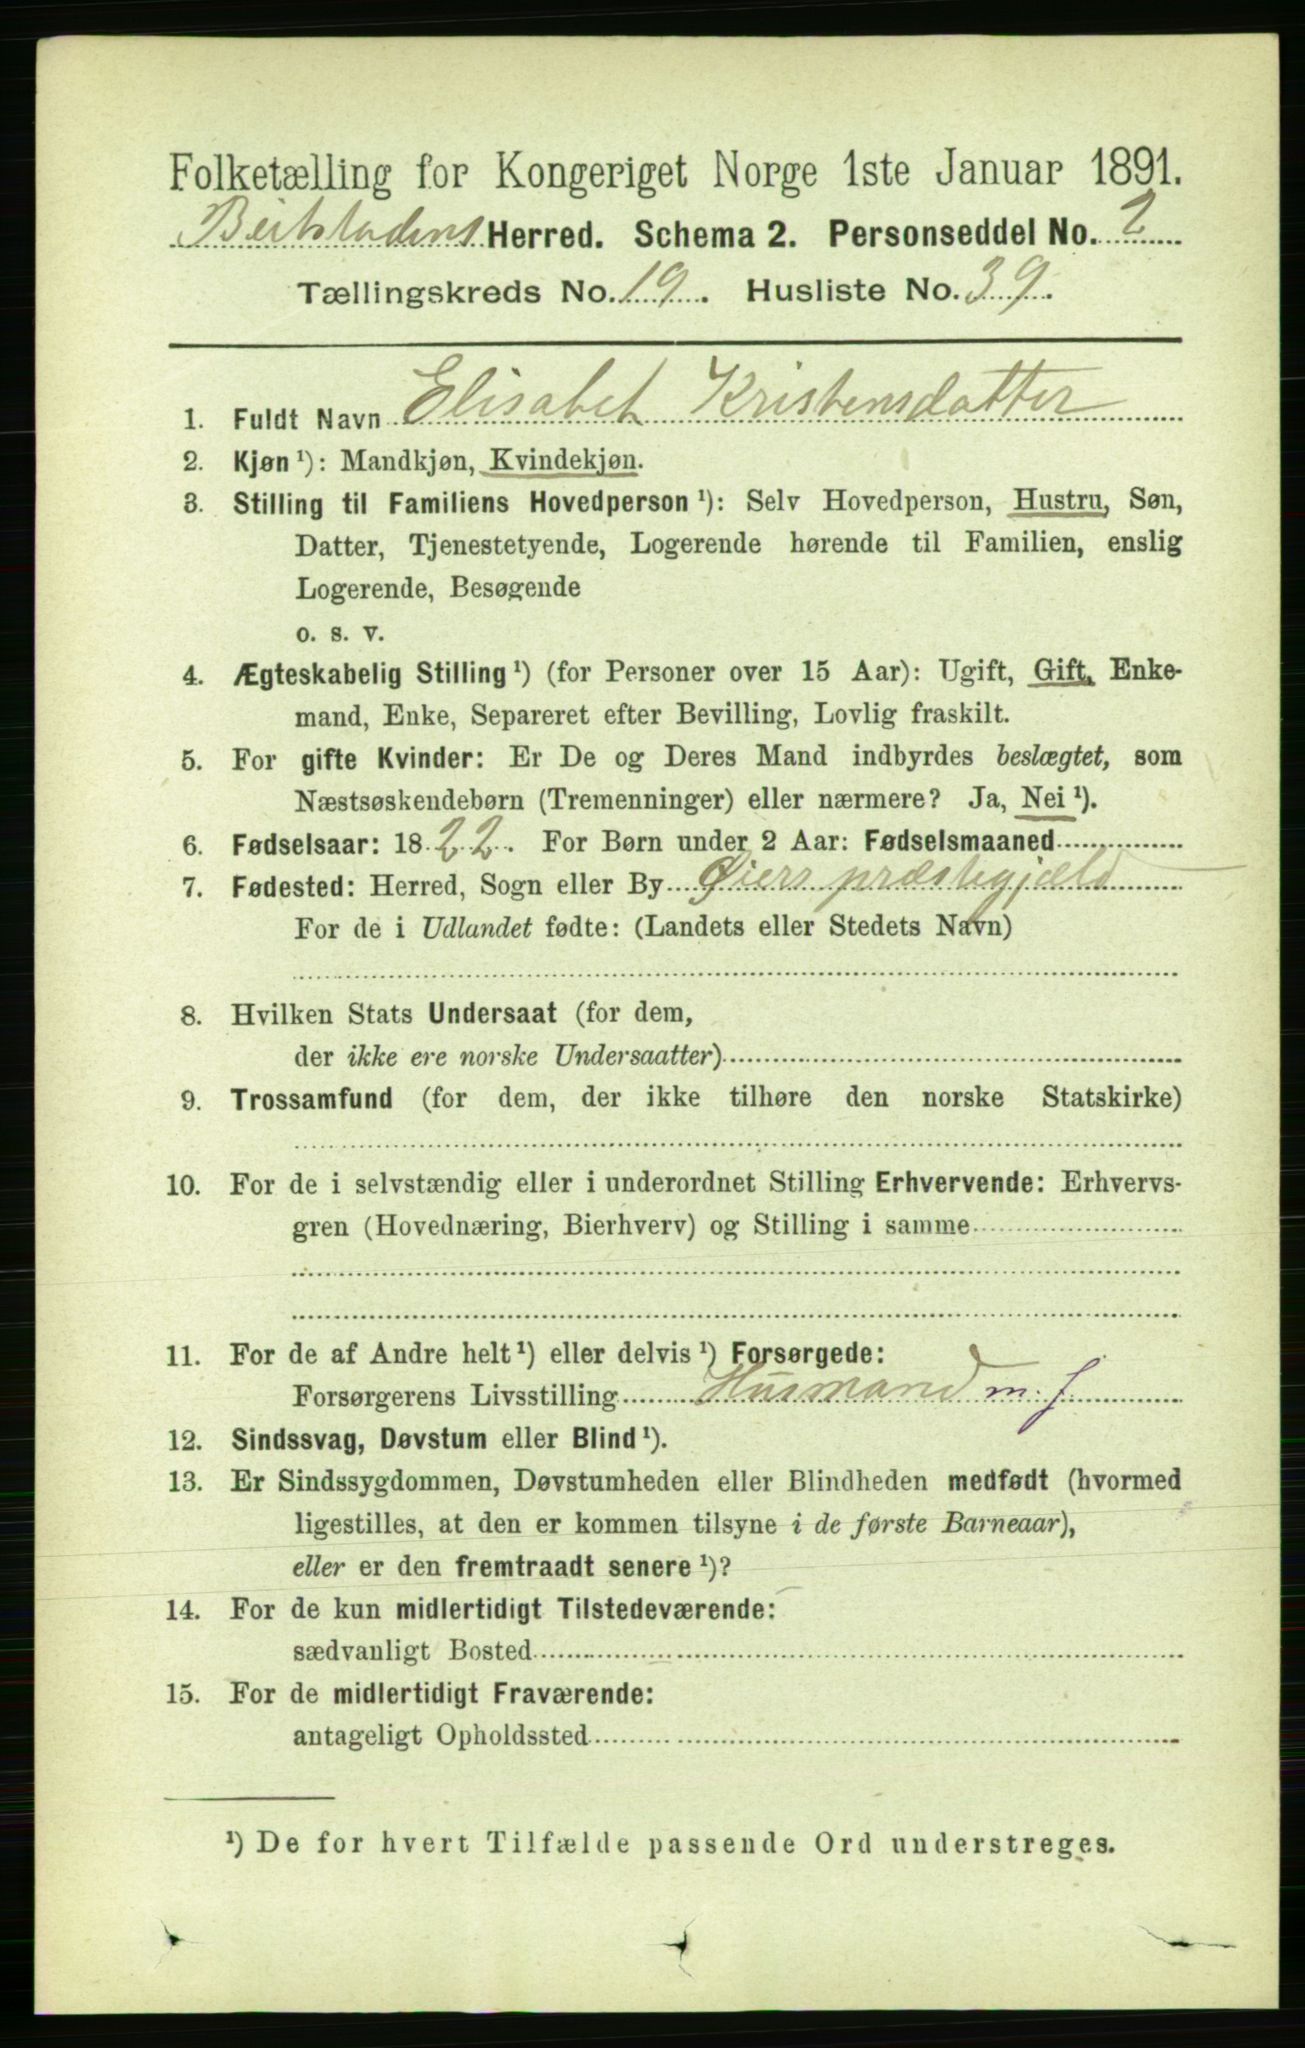 Folketælling for Kongeriget Norge 1ste Januar 1891.
Beitstadens Herred. Schema 2. Personseddel No. 2
Tællingskreds No. 19. Husliste No. 39.
1. Fuldt Navn Elisabet Kristensdatter
2. Kjøn ¹): Mandkjøn, Kvindekjøn.
3. Stilling til Familiens Hovedperson ¹): Selv Hovedperson, Hustru, Søn,
Datter, Tjenestetyende, Logerende hørende til Familien, enslig
Logerende, Besøgende
o. s. v.
4. Ægteskabelig Stilling ¹) (for Personer over 15 Aar): Ugift, Gift, Enke-
mand, Enke, Separeret efter Bevilling, Lovlig fraskilt.
5. For gifte Kvinder: Er De og Deres Mand indbyrdes beslægtet, som
Næstsøskendebørn (Tremenninger) eller nærmere? Ja, Nei ¹).
6. Fødselsaar: 1822. For Børn under 2 Aar: Fødselsmaaned
7. Fødested: Herred, Sogn eller By Øiers præstegjæld
For de i Udlandet fødte: (Landets eller Stedets Navn)
8. Hvilken Stats Undersaat (for dem,
der ikke ere norske Undersaatter)
9. Trossamfund (for dem, der ikke tilhøre den norske Statskirke)
10. For de i selvstændig eller i underordnet Stilling Erhvervende: Erhvervs-
gren (Hovednæring, Bierhverv) og Stilling i samme
11. For de af Andre helt ¹) eller delvis ¹) Forsørgede:
Forsørgerens Livsstilling Husmand m. j.
12. Sindssvag, Døvstum eller Blind ¹).
13. Er Sindssygdommen, Døvstumheden eller Blindheden medfødt (hvormed
ligestilles, at den er kommen tilsyne i de første Barneaar),
eller er den fremtraadt senere ¹)?
14. For de kun midlertidigt Tilstedeværende:
sædvanligt Bosted
15. For de midlertidigt Fraværende:
antageligt Opholdssted
¹) De for hvert Tilfælde passende Ord understreges.